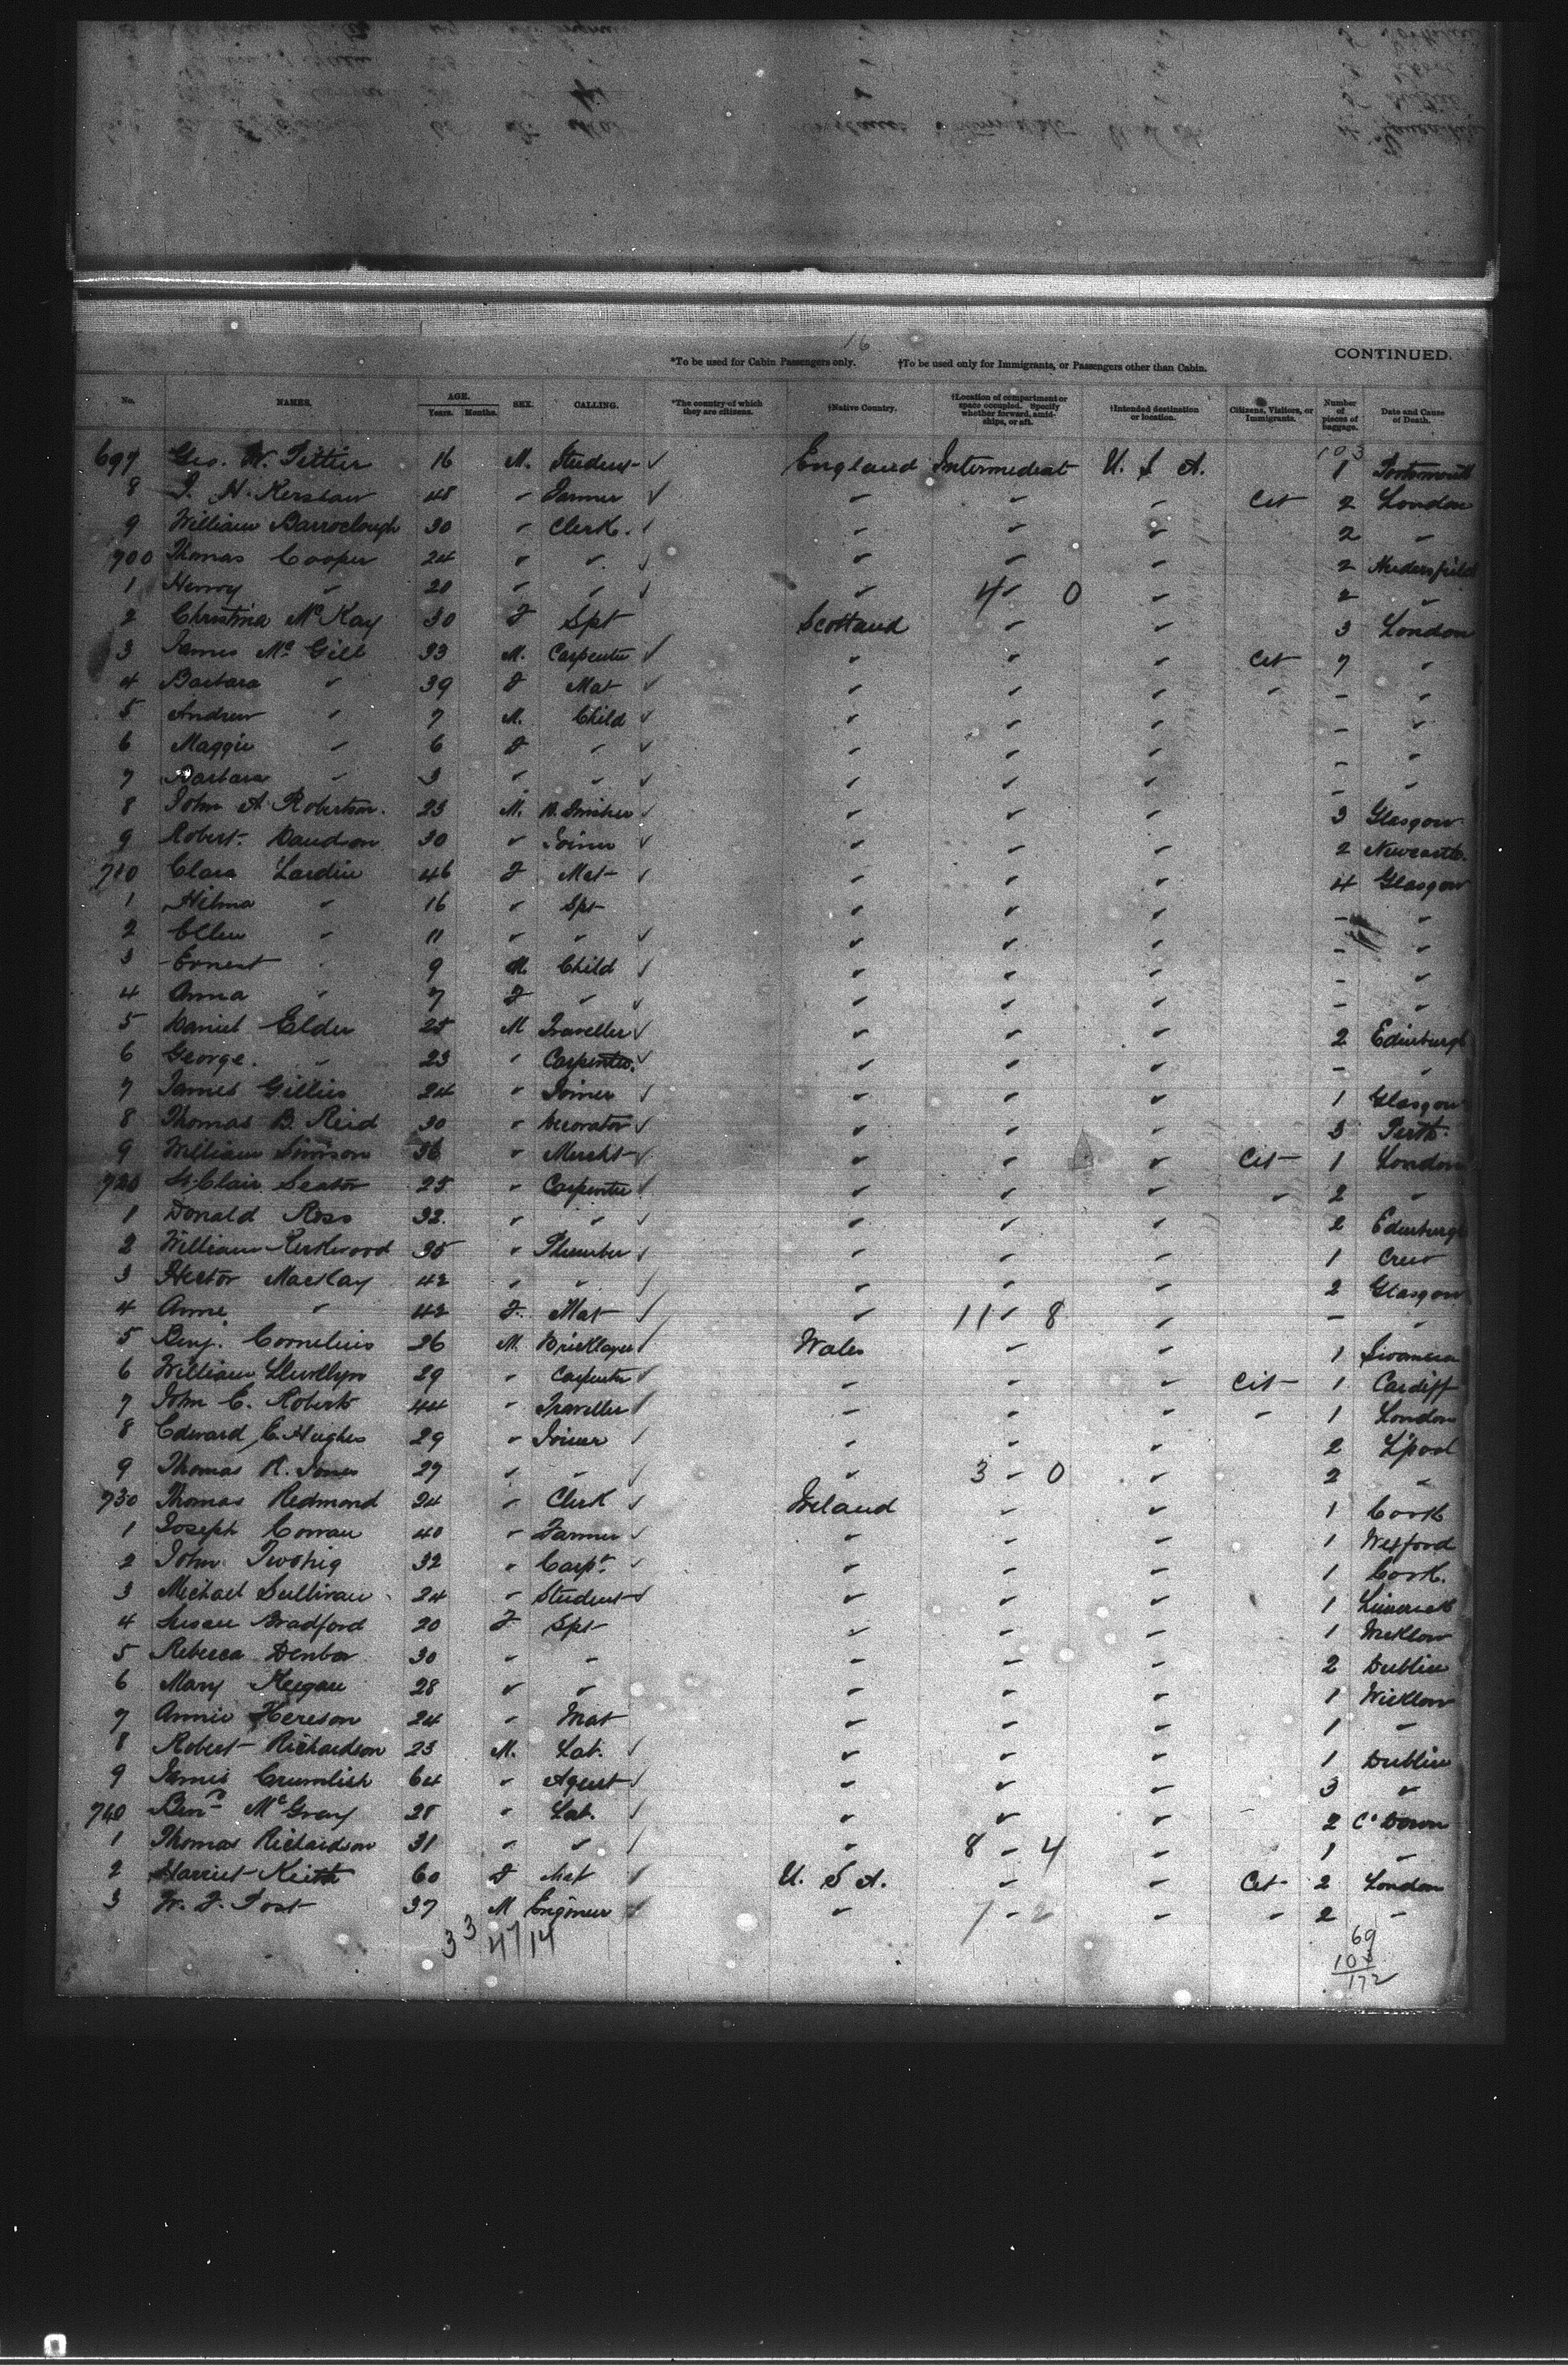 16
CONTINUED.
*To be used for Cabin Passengers only. †To be used only for Immigrants, or Passengers other than Cabin.
No. NAMES. AGE. Years. Months. SEX. CALLING. *The country of which they are citizens. †Native Country. †Location of compartment or space occupied. Specify whether forward, amidships, or aft. †Intended destination or location. Citizens, Visitors, or Immigrants. Number of pieces of baggage. Date and Cause of Death.
103
697 Geo. W. 16 M. Student ✓ England Intermediat U. S A. 1 Portsmouth
8 J. H. Kershaw 48 " Farmer ✓ " " " Cit 2 London
9 William Barroclough 30 " Clerk. ✓ " " " 2 "
700 Thomas Cooper 24 " " ✓ " " " 2 Hudersfield
1 Henry " 20 " " ✓ " 4 - 0 " 2 "
2 Christina McKay 30 F Spt Scotland " " 3 London
3 James McGill 33 M. Carpenter ✓ " " " Cit 7 "
4 Barbara " 39 F Mat ✓ " " " " - "
5 Andrew " 7 M. Child ✓ " " " - "
6 Maggie " 6 F " ✓ " " " - "
7 Barbara " 3 " " ✓ " " " - "
8 John A. Robertson. 23 M. ✓ " " " 3 Glasgow
9 Robert Davidson 30 " Joiner ✓ " " " 2 Newcastle.
710 Clara Lardin 46 F Mat ✓ " " " 4 Glasgow
1 Hilma " 16 " Spt " " " - "
2 Ellen " 11 " " ✓ " " " - "
3 Ernest " 9 M. Child ✓ " " " - "
4 Anna " 7 F " ✓ " " " - "
5 Daniel Elder 25 M Traveller ✓ " " " 2 Edinburgh
6 George. " 23 " Carpenter. ✓ " " " - "
7 James Gillies 24 " Joiner ✓ " " " 1 Glasgow
8 Thomas B. Reid 30 " Decorator ✓ " " " 3 Perth.
9 William Simson 36 " Mercht ✓ " " " Cit 1 London
720 St Clair Seator 25 " Carpenter ✓ " " " " 2 "
1 Donald Ross 32. " " ✓ " " " 2 Edinburgh
2 William Kirkwood 35 " Plumber ✓ " " " 1 Crew
3 Hector MacKay 42 " " ✓ " " " 2 Glasgow
4 Anne " 42 F. Mat ✓ " 11 - 8 " - "
5 Benj. Cornelius 26 M. Bricklayer ✓ Wales " " 1 Swansea
6 William Llewllyn 29 " Carpenter ✓ " " " Cit 1 Cardiff
7 John E. Roberts 44 " Traveller ✓ " " " " 1 London
8 Edward E. Hughes 29 " Joiner ✓ " " " 2 L'pool
9 Thomas R. Jones 27 " " ✓ " 3 - 0 " 2 "
730 Thomas Redmond 24 " Clerk ✓ Ireland " " 1 Cork
1 Joseph 40 " Farmer ✓ " " " 1 Wexford
2 John Twohig 32 " Carpr. ✓ " " " 1 Cork.
3 Michael Sullivan 24 " Student ✓ " " " 1 Limerick
4 Susan Bradford 20 F Spt " " " 1 Wicklow
5 Rebecca 30 " " " " " 2 Dublin
6 Mary Keegan 28 " " " " " 1 Wicklow
7 Annie 24 " Mat " " " 1 "
8 Robert Richardson 23 M. Lab. ✓ " " " 1 Dublin
9 James Crumlish 64 " Agent ✓ " " " 3 "
740 Benn McGray 28 " Lab. ✓ " " " 2 Co Down
1 Thomas Richardson 31 " " ✓ " 8 - 4 " 1 "
2 Harriet Keith 60 F Mat ✓ U. S A. " " Cit 2 London
3 W. F. Post 37 M Engineer ✓ " 7 - 2 " " 2 "
33 47/14
69
103
172